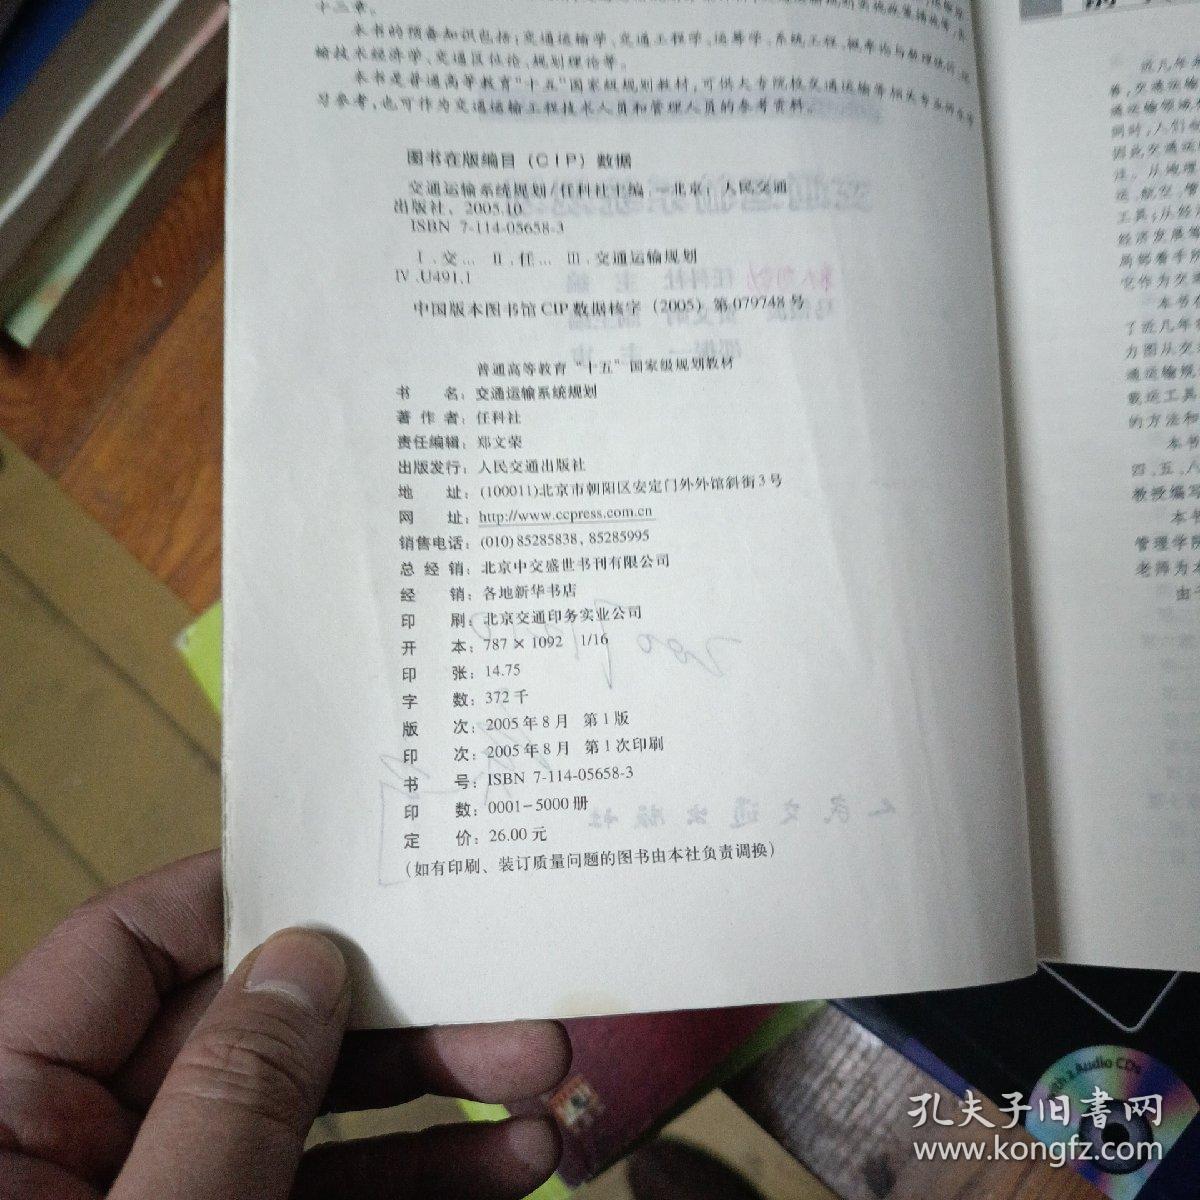 十三章。
本书的预备知识包括:交通运输学、交通工程学、运筹学、系统工程、概率论与数理统计、运
输技术经济学、交通区位论、规划理论等。
本书是普通高等教育“十五”国家级规划教材,可供大专院校交通运输等相关专业的
习参考,也可作为交通运输工程技术人员和管理人员的参考资料。
图书在版编目(CIP)数据
交通运输系统规划/任科社主编.—北京:人民交通
出版社,2005.10
ISBN 7-114-05658-3
Ⅰ.交… Ⅱ.任… Ⅲ.交通运输规划
Ⅳ.U491.1
中国版本图书馆CIP数据核字(2005)第079748号
普通高等教育“十五”国家级规划教材
书 名:交通运输系统规划
著作者:任科社
责任编辑:郑文荣
出版发行:人民交通出版社
地 址:(100011)北京市朝阳区安定门外外馆斜街3号
网 址:http://www.ccpress.com.cn
销售电话:(010)85285838,85285995
总经销:北京中交盛世书刊有限公司
经 销:各地新华书店
印 刷:北京交通印务实业公司
开 本:787×1092 1/16
印 张:14.75
字 数:372千
版 次:2005年8月 第1版
印 次:2005年8月 第1次印刷
书 号:ISBN 7-114-05658-3
印 数:0001-5000册
定 价:26.00元
(如有印刷、装订质量问题的图书由本社负责调换)
近几年来
善,交通运输
通运输领域
同时,人们
因此交通运
注。从地理
运、航空、管
工具;从经
经济发展等
局部看手所
它作为交
本书在
了近几年
方面从交
通运输规
载运工具
的方法和
本书
四、五、八
教授编写
本书
管理学院
老师为本
由于
2 Audio CDs
孔夫子旧书网
www.kongfz.com